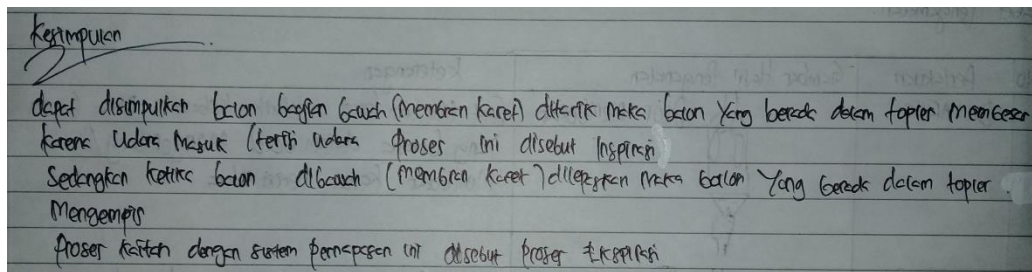 Kesimpulan
dapat disimpulkan balon bagian bawah (membran karet) ditarik maka balon yang berada dalam toples membesar
karena udara masuk (terisi udara proses ini disebut Inspirasi
Sedangkan ketika balon dibawah (membran karet) dilepaskan maka balon yang berada dalam toples.
Mengempis
Proses kaitan dengan sistem pernapasan ini disebut proses Ekspirasi